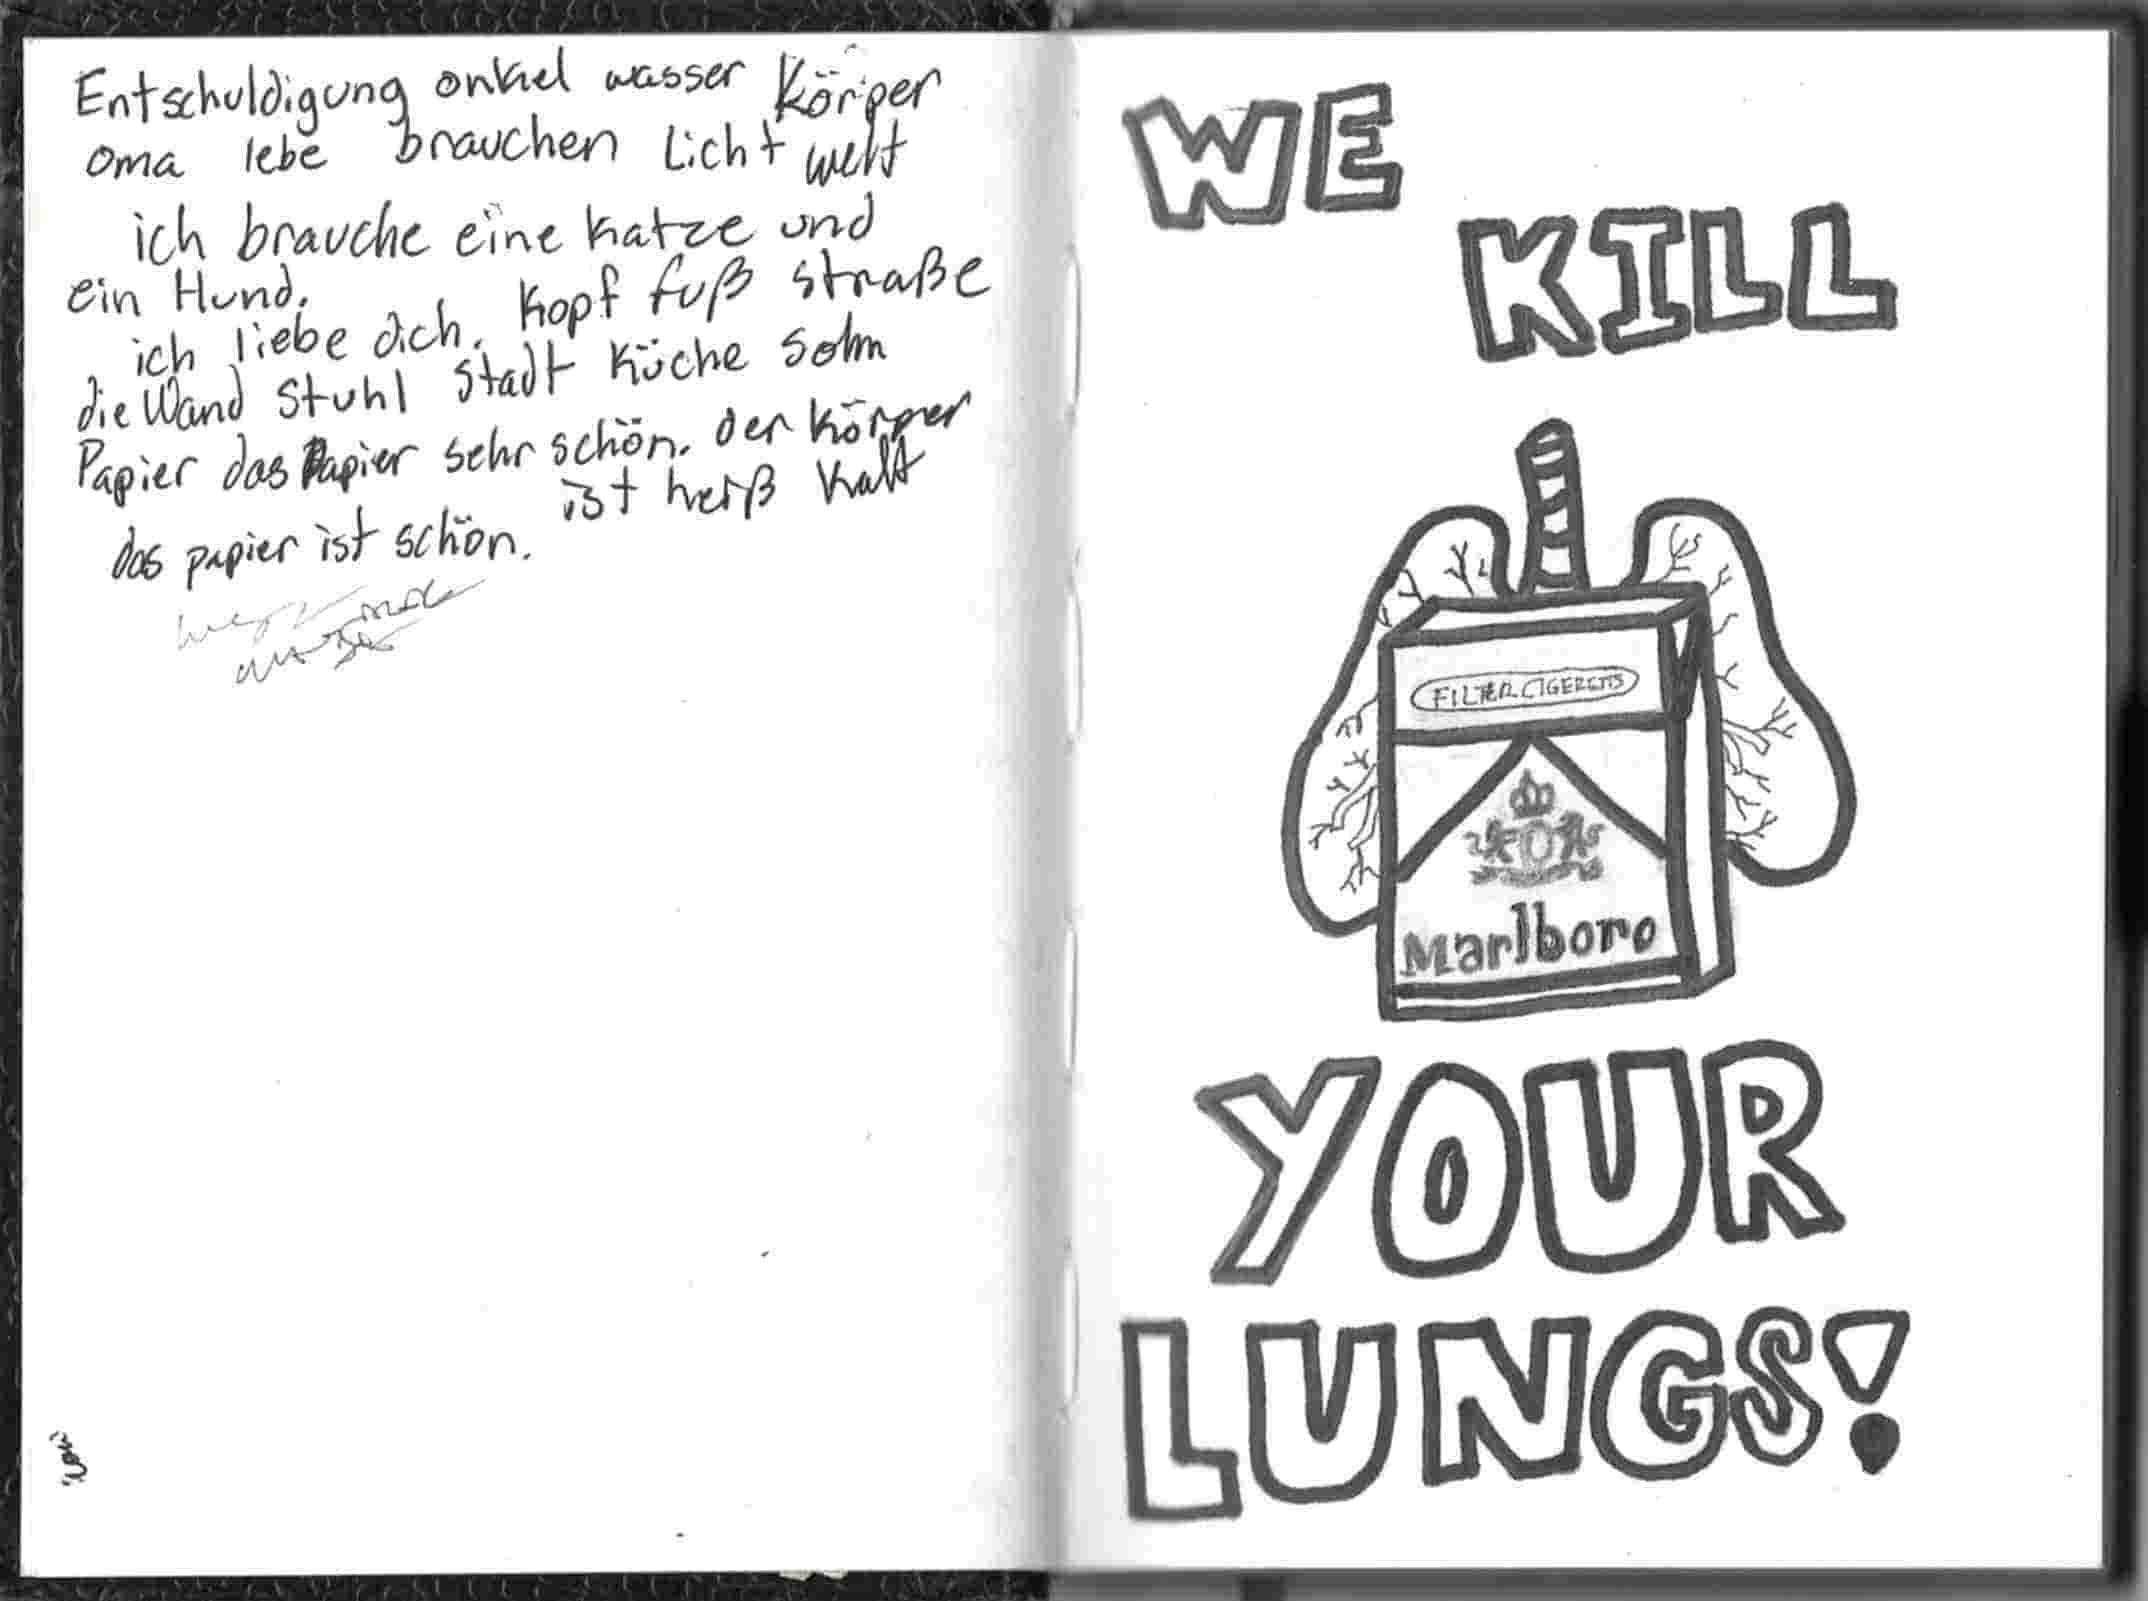 Entschuldigung onkel wasser Körper
oma lebe brauchen Licht welt
ich brauche eine Katze und
ein Hund.
ich liebe dich. Kopf fuß straße
die Wand Stuhl Stadt Küche sohn
Papier das Papier sehr schön. der Körper
ist heiß kalt
das papier ist schön.
WE
KILL
FILTER CIGERETTS
Marlboro
YOUR
LUNGS!